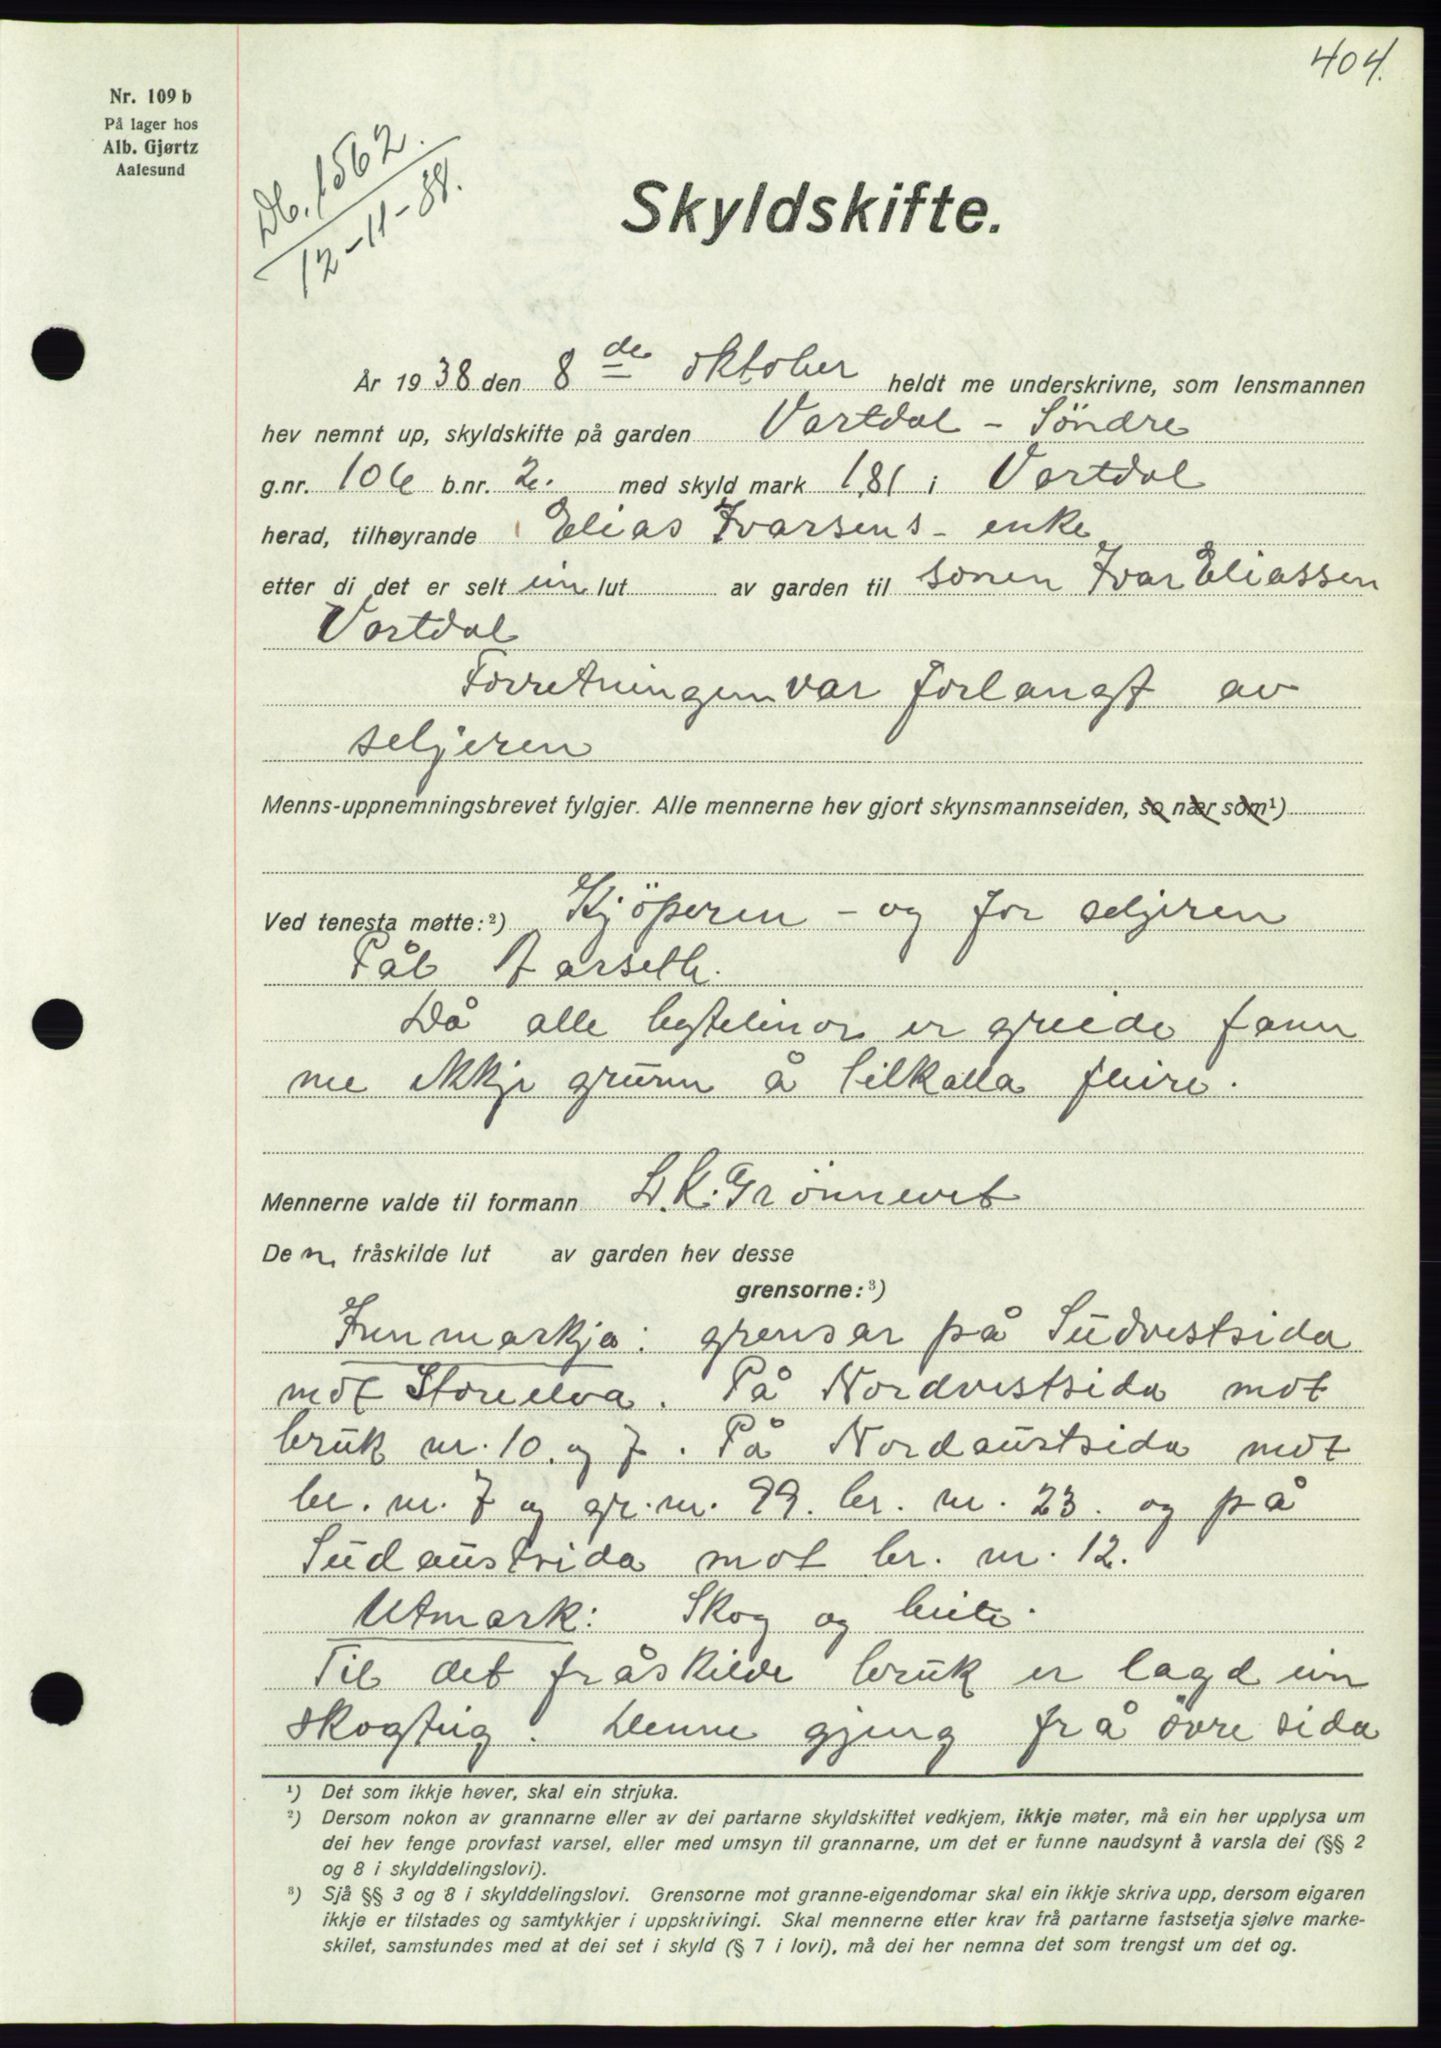 404.
Nr. 109 b
På lager hos
Alb. Gjørtz
Aalesund
Db. 1562.
12-11-38.
Skyldskifte.
År 1938 den 8de oktober heldt me underskrivne, som lensmannen
hev nemnt up, skyldskifte på garden Vartdal - Söndre
g.nr. 106 b.nr. 2. med skyld mark 1,81 i Vartdal
herad, tilhøyrande Elias Ivarsens - enke
etter di det er selt ein lut av garden til sonen Ivar Eliassen
Vartdal
Forretningen var forlangt av
seljeren
Menns-uppnemningsbrevet fylgjer. Alle mennerne hev gjort skynsmannseiden, so nær som¹)
Ved tenesta møtte:²) Kjöperen - og for seljeren
Pål Aarseth.
Då alle bytelinor er greide fann
me ikkje grunn å tilkalla fleire.
Mennerne valde til formann L. K. Grönnevet
Den fråskilde lut av garden hev desse
grensorne:³)
Innmarkja: grensar på Südvestsida
mot Storelva. På Nordvestsida mot
brük nr. 10 og 7. På Nordaüstsida mot
br. nr. 7 og gr. nr. 99. br. nr. 23. og på
Südaüstsida mot br. nr. 12.
Utmark: Skog og beite.
Til det fråskilde brük er lagd ein
skogteig. Denne gjeng frå övre sida
¹) Det som ikkje høver, skal ein strjuka.
²) Dersom nokon av grannarne eller av dei partarne skyldskiftet vedkjem, ikkje møter, må ein her upplysa um
dei hev fenge provfast varsel, eller med umsyn til grannarne, um det er funne naudsynt å varsla dei (§§ 2
og 8 i skylddelingslovi).
³) Sjå §§ 3 og 8 i skylddelingslovi. Grensorne mot granne-eigendomar skal ein ikkje skriva upp, dersom eigaren
ikkje er tilstades og samtykkjer i uppskrivingi. Skal mennerne etter krav frå partarne fastsetja sjølve marke-
skilet, samstundes med at dei set i skyld (§ 7 i lovi), må dei her nemna det som trengst um det og.